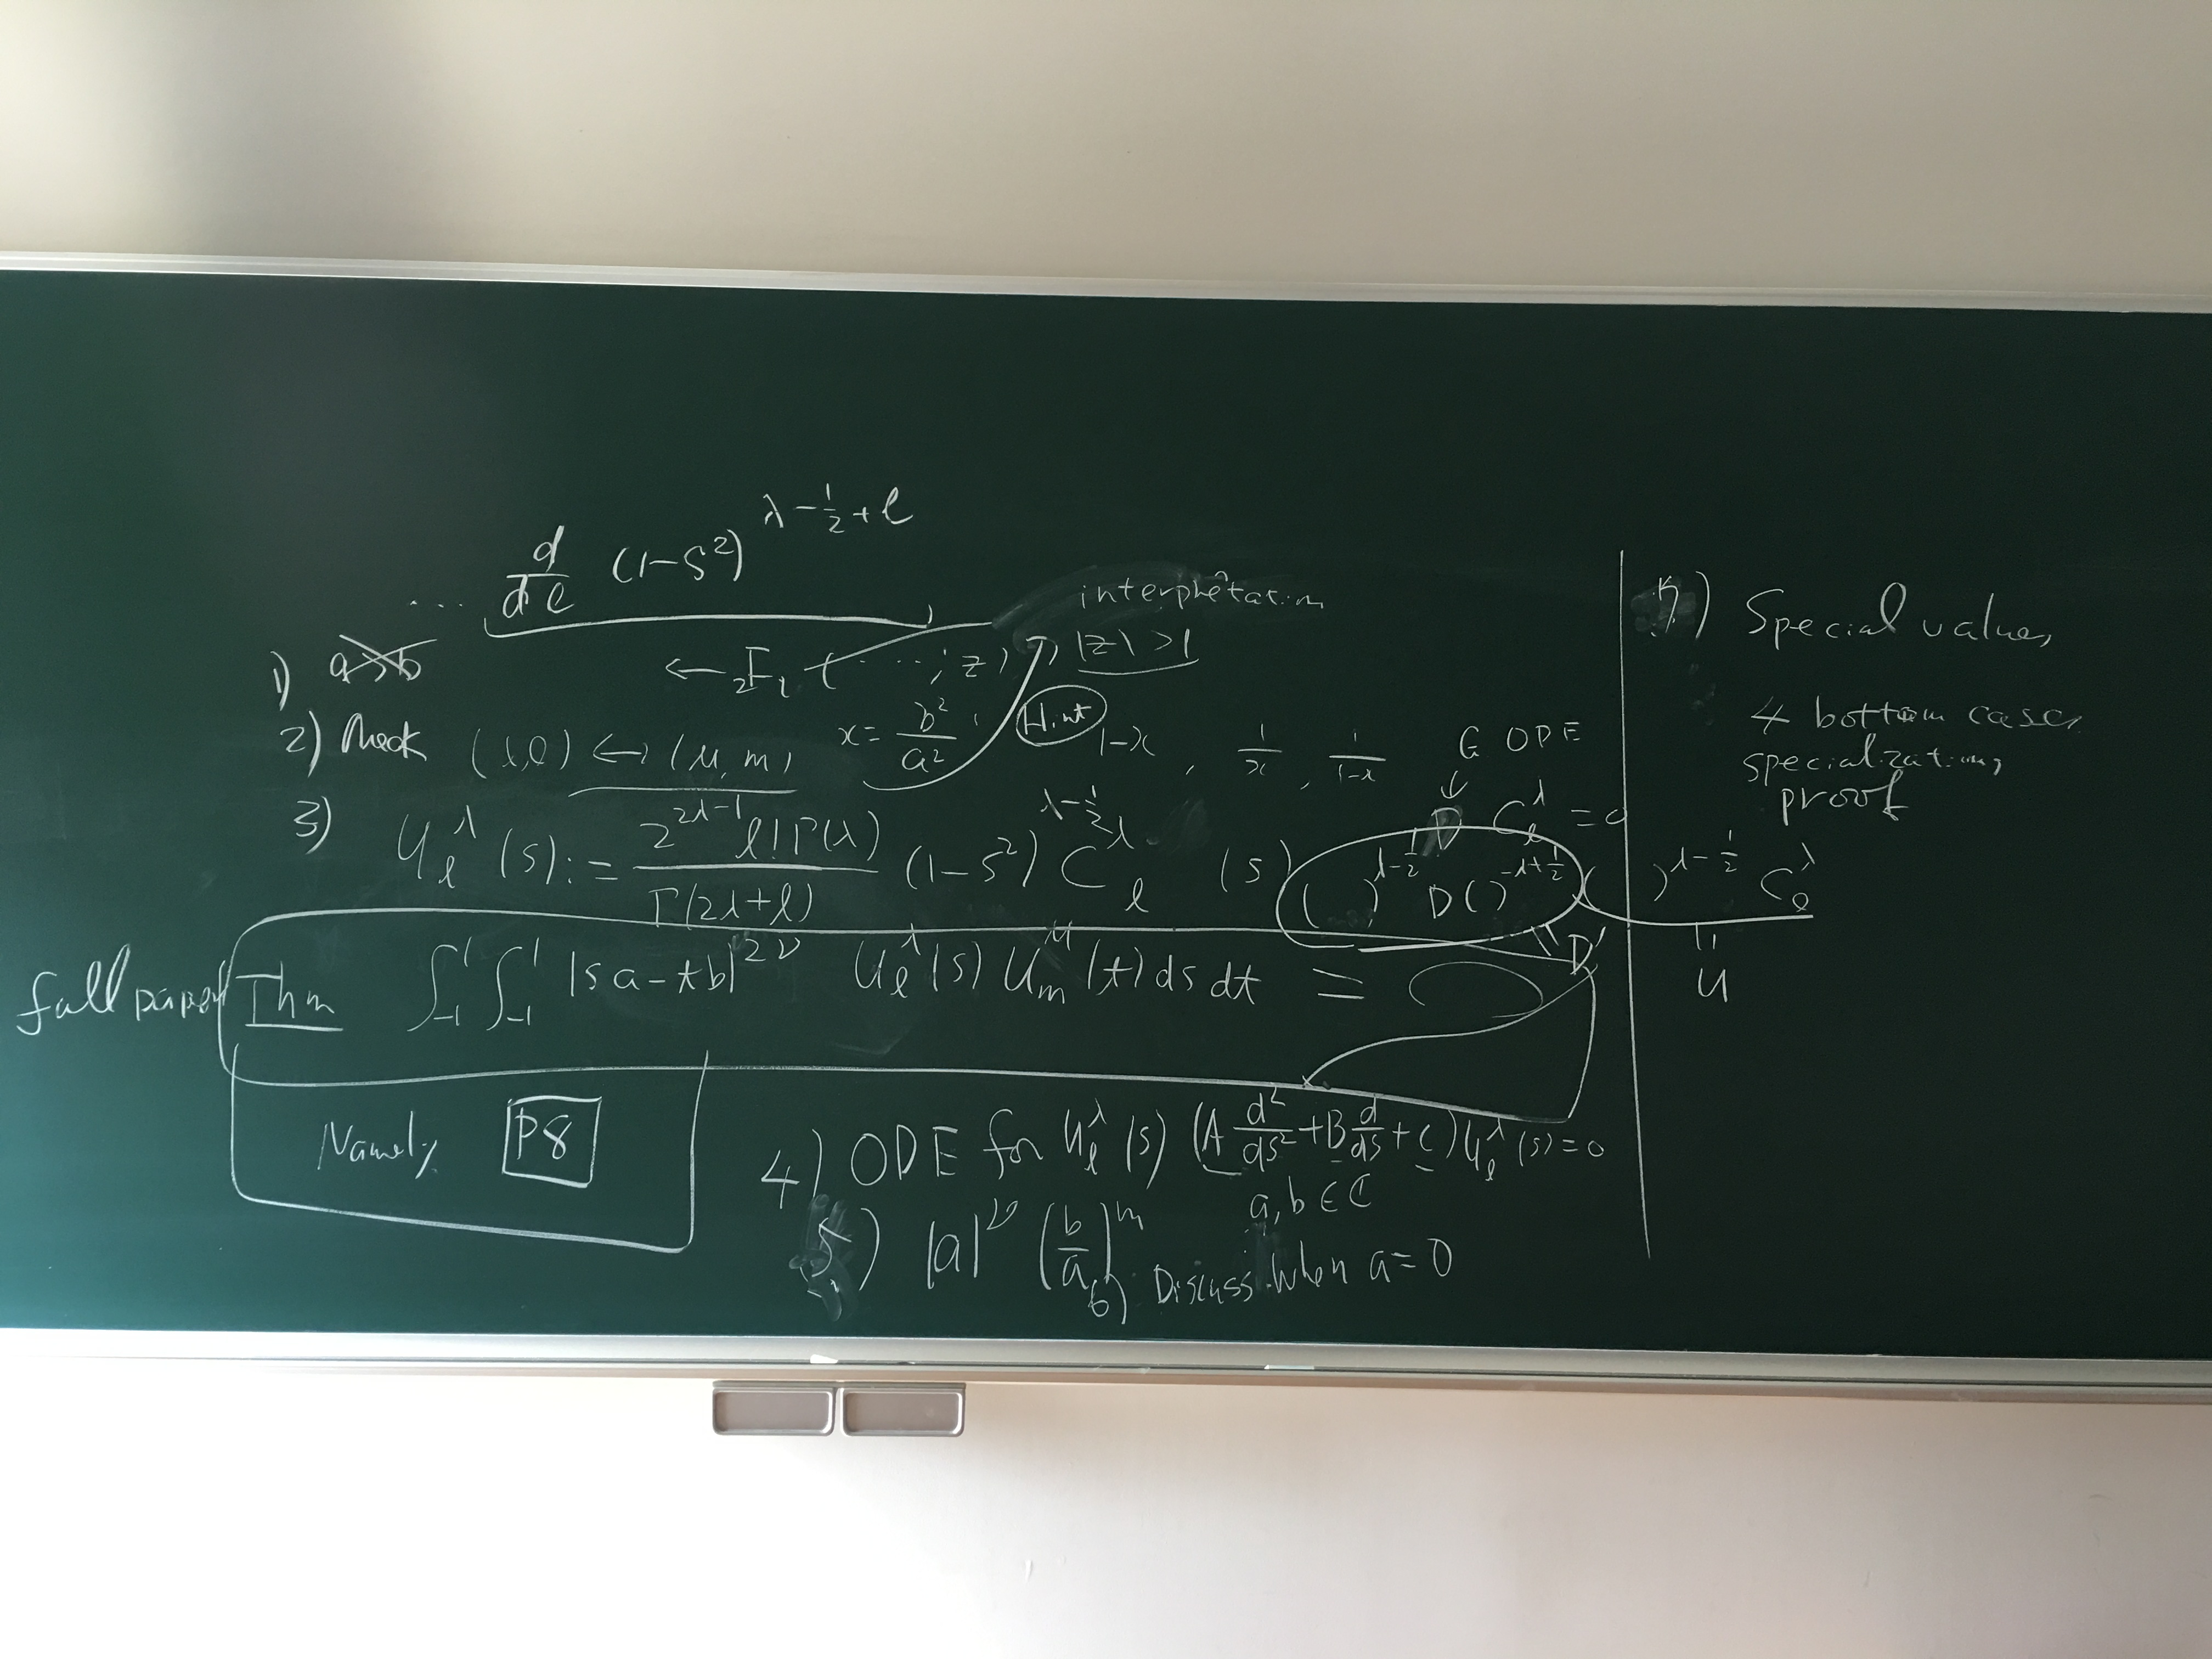 ... d/dℓ (1-s²)^{λ-1/2+ℓ}
interpretation
1) a>b ← ₂F₁(.....;z), |z|>1
2) Check (λ,ℓ) ↔ (μ,m) x = b²/a², Hint 1-x, 1/x, 1/(1-x)
G ODE
↓
D C_ℓ^λ = 0
3) U_ℓ^λ(s) := 2^{2λ-1} ℓ! Γ(λ) / Γ(2λ+ℓ) (1-s²)^{λ-1/2} C_ℓ^λ (s)
( )^{λ-1/2} D ( )^{-λ+1/2} ( )^{λ-1/2} C_ℓ^λ
D'
U
full paper Thm ∫_{-1}^{1} ∫_{-1}^{1} |sa-tb|^{2ν} U_ℓ^λ(s) U_m^μ(t) ds dt =
Namely, P8
4) ODE for U_ℓ^λ(s) (A d²/ds² + B d/ds + C) U_ℓ^λ(s) = 0
a, b ∈ ℂ
5) |a|^{2ν} (b/a)^m
6) Discuss when a=0
7) Special values
4 bottom cases
specializations
proof